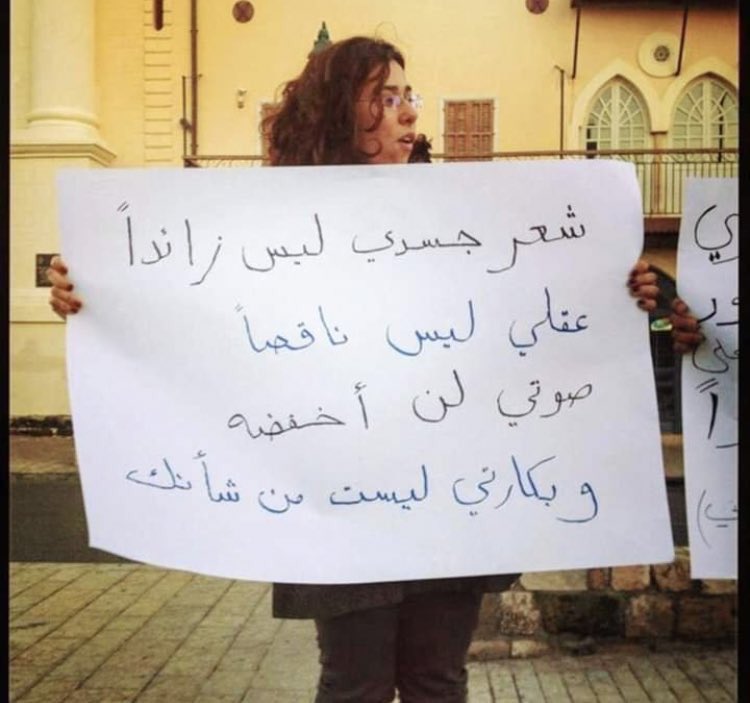 شعر جسدي ليس زائداً
عقلي ليس ناقصاً
صوتي لن أخفضه
وبكارتي ليست من شأنك